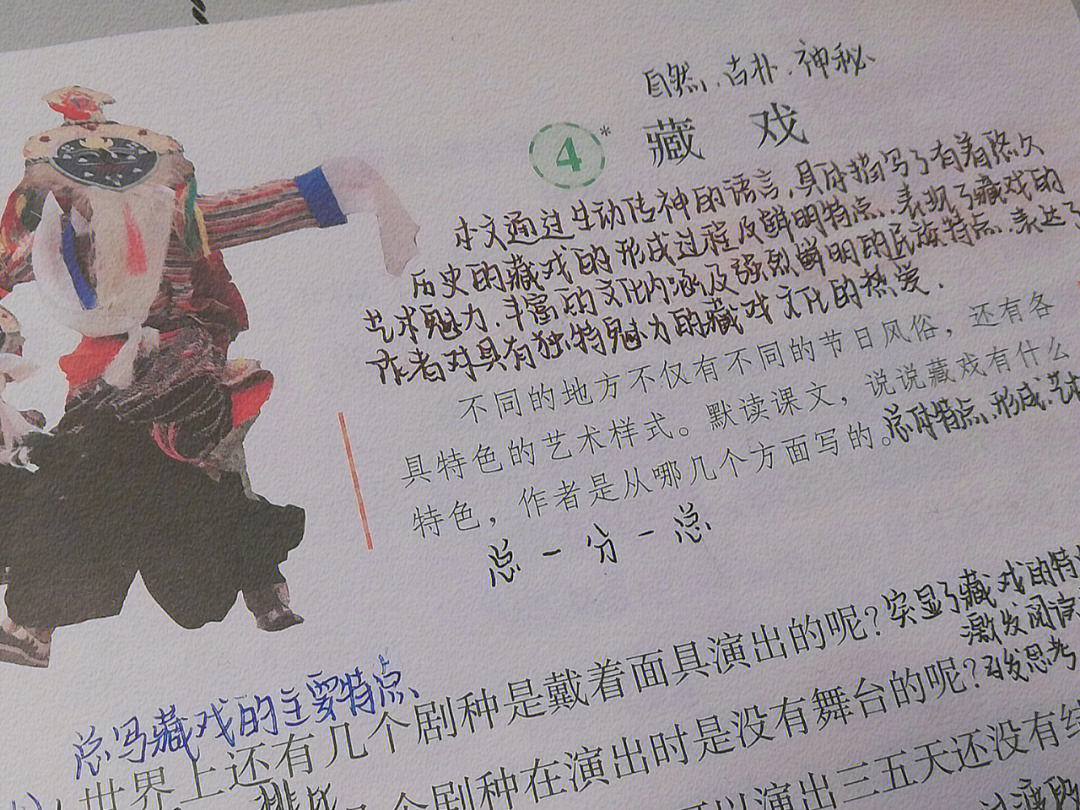 自然、古朴、神秘
4* 藏 戏
本文通过生动传神的语言,具体描写了有着悠久
历史的藏戏的形成过程及鲜明特点.表现了藏戏的
艺术魅力.丰富的文化内涵及强烈鲜明的民族特点.表达了
作者对具有独特魅力的藏戏文化的热爱.
不同的地方不仅有不同的节日风俗,还有各
具特色的艺术样式。默读课文,说说藏戏有什么
特色,作者是从哪几个方面写的。
总体特点、形成、艺术
总-分-总
突显了藏戏的特
激发阅读
引发思考
总写藏戏的主要特点
世界上还有几个剧种是戴着面具演出的呢?
排比
个剧种在演出时是没有舞台的呢?
可以演出三五天还没有结